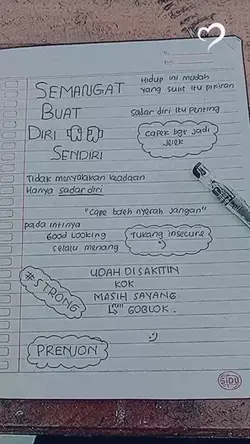 Hidup ini mudah
yang sulit itu pikiran
SEMANGAT
BUAT
DIRI
SENDIRI
sadar diri itu penting
capek bgt jadi
jelek
Tidak menyalakan keadaan
Hanya sadar diri
"cape boleh nyerah jangan"
pada intinya
Good Looking
selalu menang
Tukang insecure
#STRONG
UDAH DISAKITIN
KOK
MASIH SAYANG
GOBLOK.
PRENJON
SIDU